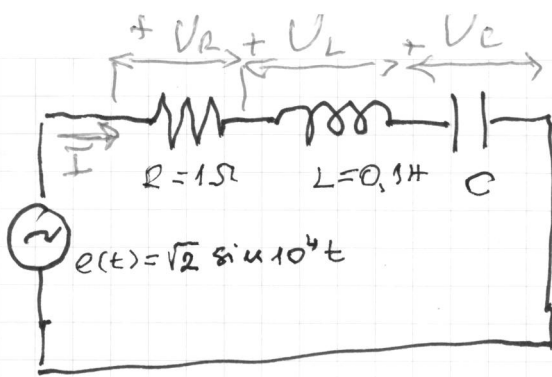 + U_R + U_L + U_C
I
R=1Ω L=0,1H C
e(t)=√2 sin 10⁴t